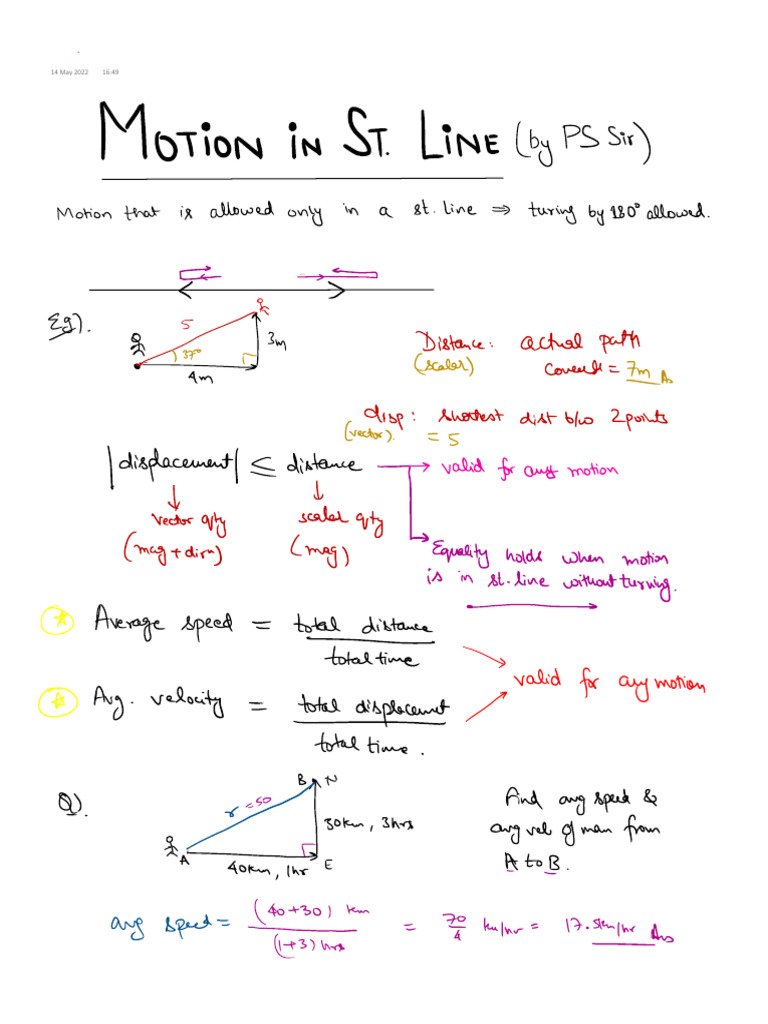 14 May 2022 16:49
MOTION IN ST. LINE (by PS Sir)
Motion that is allowed only in a st. line ⇒ turing by 180° allowed.
Eg).
5
37°
3m
4m
Distance: actual path
(scalar) covered = 7m Ans
disp: shortest dist b/w 2 points
(vector). = 5
|displacement| ≤ distance → valid for any motion
↓ ↓
vector qty scalar qty
(mag + dirn) (mag)
Equality holds when motion
is in st. line without turning.
Average speed = total distance
total time
valid for any motion
Avg. velocity = total displacemet
total time.
Q).
B N
r = 50
30km, 3hrs
A
40km, 1hr E
Find avg speed &
avg vel of man from
A to B.
avg speed = (40+30) km / (1+3) hrs = 70/4 km/hr = 17.5km/hr Ans